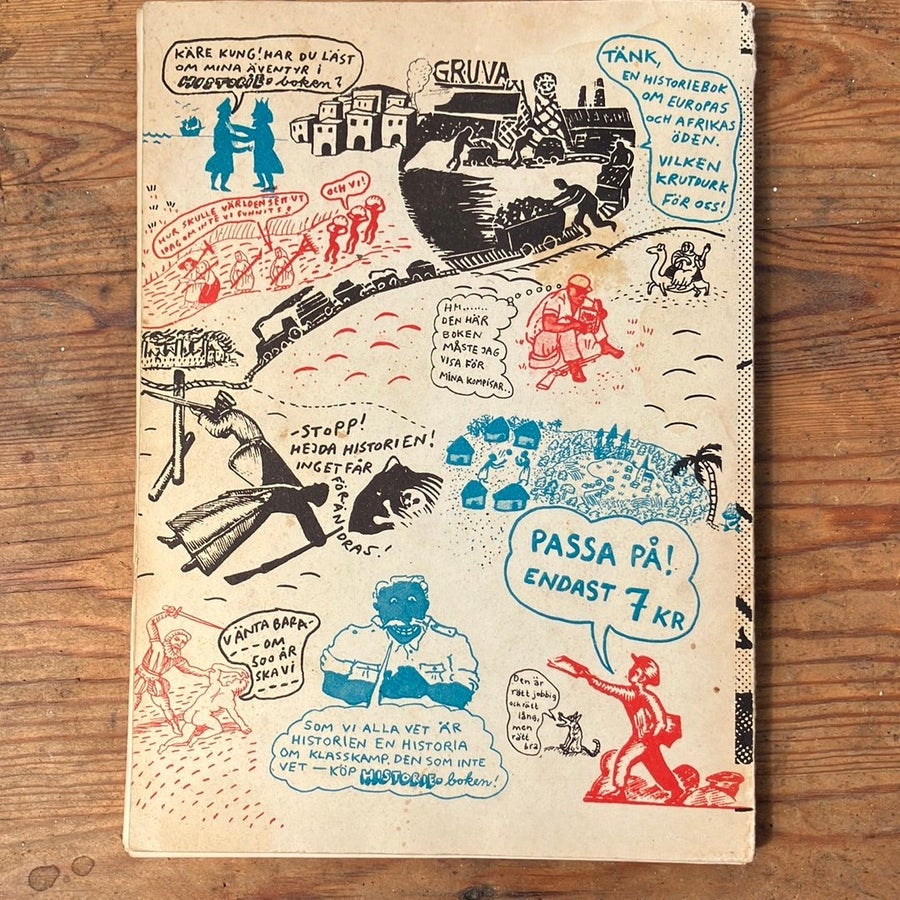 KÄRE KUNG! HAR DU LÄST
OM MINA ÄVENTYR I
HISTORIE-boken?
GRUVA
TÄNK,
EN HISTORIEBOK
OM EUROPAS
OCH AFRIKAS
ÖDEN.
VILKEN
KRUTDURK
FÖR OSS!
HUR SKULLE VÄRLDEN SETT UT
IDAG OM INTE VI FUNNITS?
OCH VI!
HM.......
DEN HÄR
BOKEN
MÅSTE JAG
VISA FÖR
MINA KOMPISAR..
-STOPP!
HEJDA HISTORIEN!
INGET FÅR
FÖRÄNDRAS!
PASSA PÅ!
ENDAST 7 KR
VÄNTA BARA-
---OM
500 ÅR
SKA VI
----
Den är
rätt jobbig
och rätt
lång,
men
rätt
bra
SOM VI ALLA VET ÄR
HISTORIEN EN HISTORIA
OM KLASSKAMP. DEN SOM INTE
VET — KÖP HISTORIE-boken!